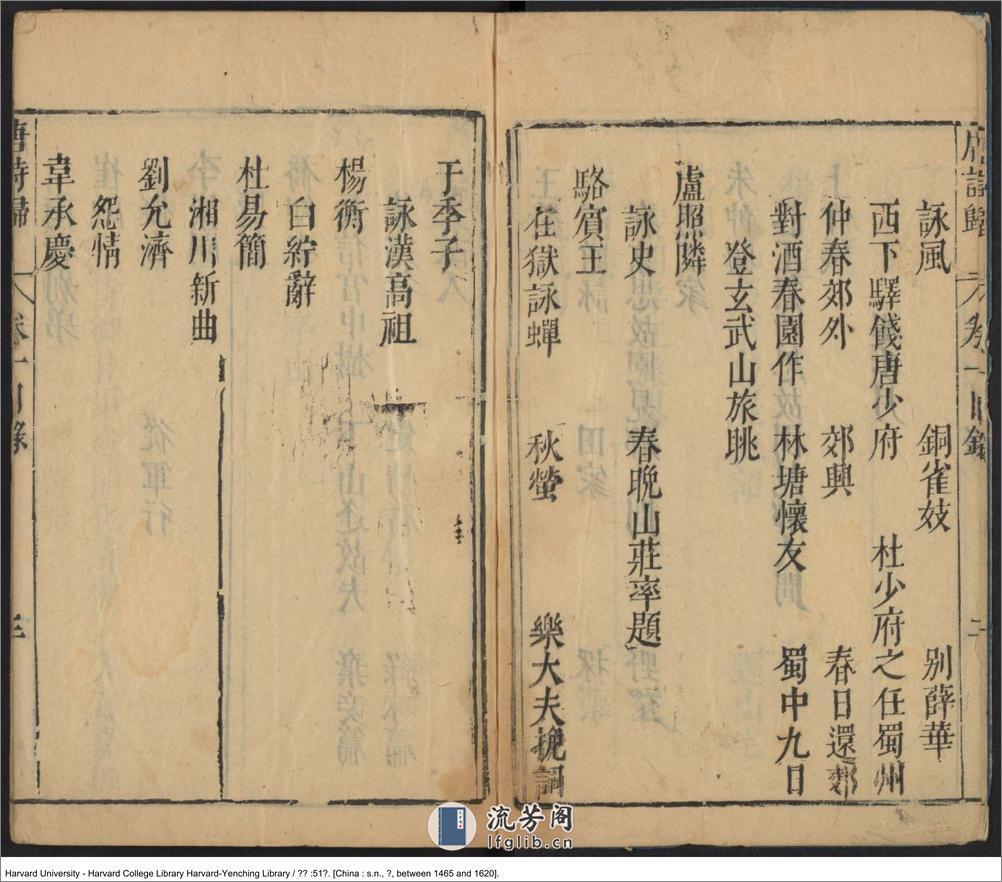 唐詩歸 卷一目錄 二
詠風 銅雀妓 別薛華
西下驛餞唐少府 杜少府之任蜀州
仲春郊外 郊興 春日還郊
對酒春園作 林塘懷友 蜀中九日
登玄武山旅眺
盧照隣
詠史 春晚山莊率題
駱賔王
在獄詠蟬 秋螢 樂大夫挽詞
于季子
詠漢高祖
楊衡
白紵辭
杜易簡
湘川新曲
劉允濟
怨情
韋承慶
唐詩歸 卷一目錄 三
流芳阁
lfglib.cn
Harvard University - Harvard College Library Harvard-Yenching Library / ?? :51?. [China : s.n., ?, between 1465 and 1620].